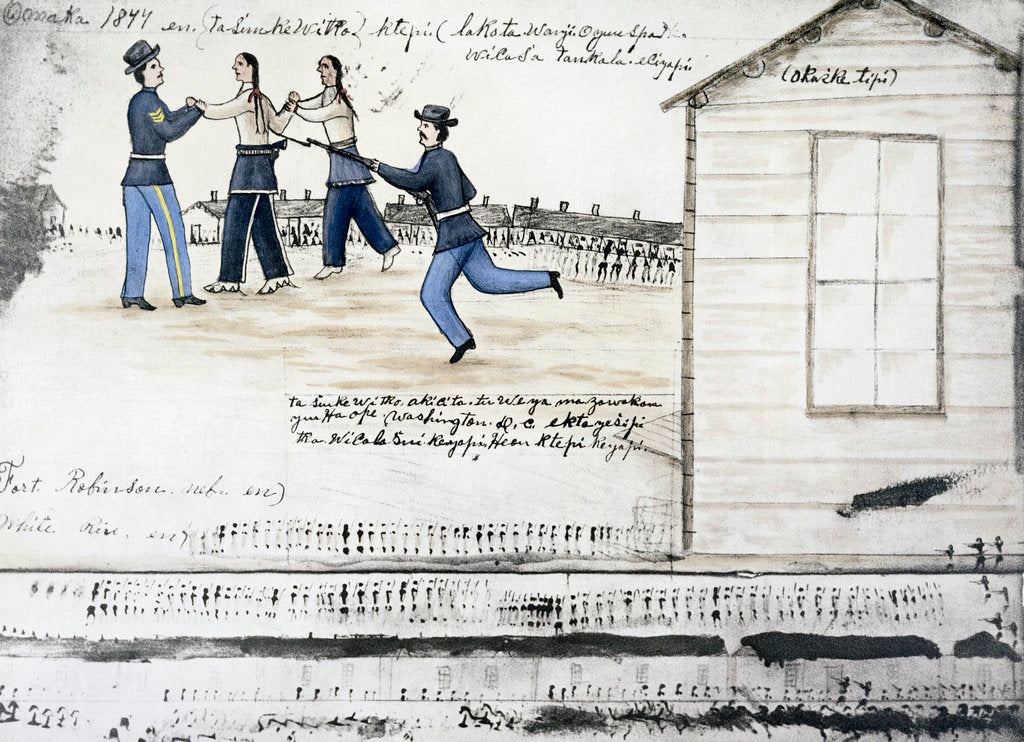 Omaka 1877 en. (ta sunke Witko) ktepi. (lakota Wanji Oyuspa)
Wicasa tankala. eciyapi
(Okaške tipi)
ta sunke Witko. akicita. ta Weya mazawakan
yuha ope. Washington. D. C. ekta yešipi
tka. Wicala šni keyapi. Heon ktepi keyapi.
Fort Robinson. nebr. en)
White Riv. en)